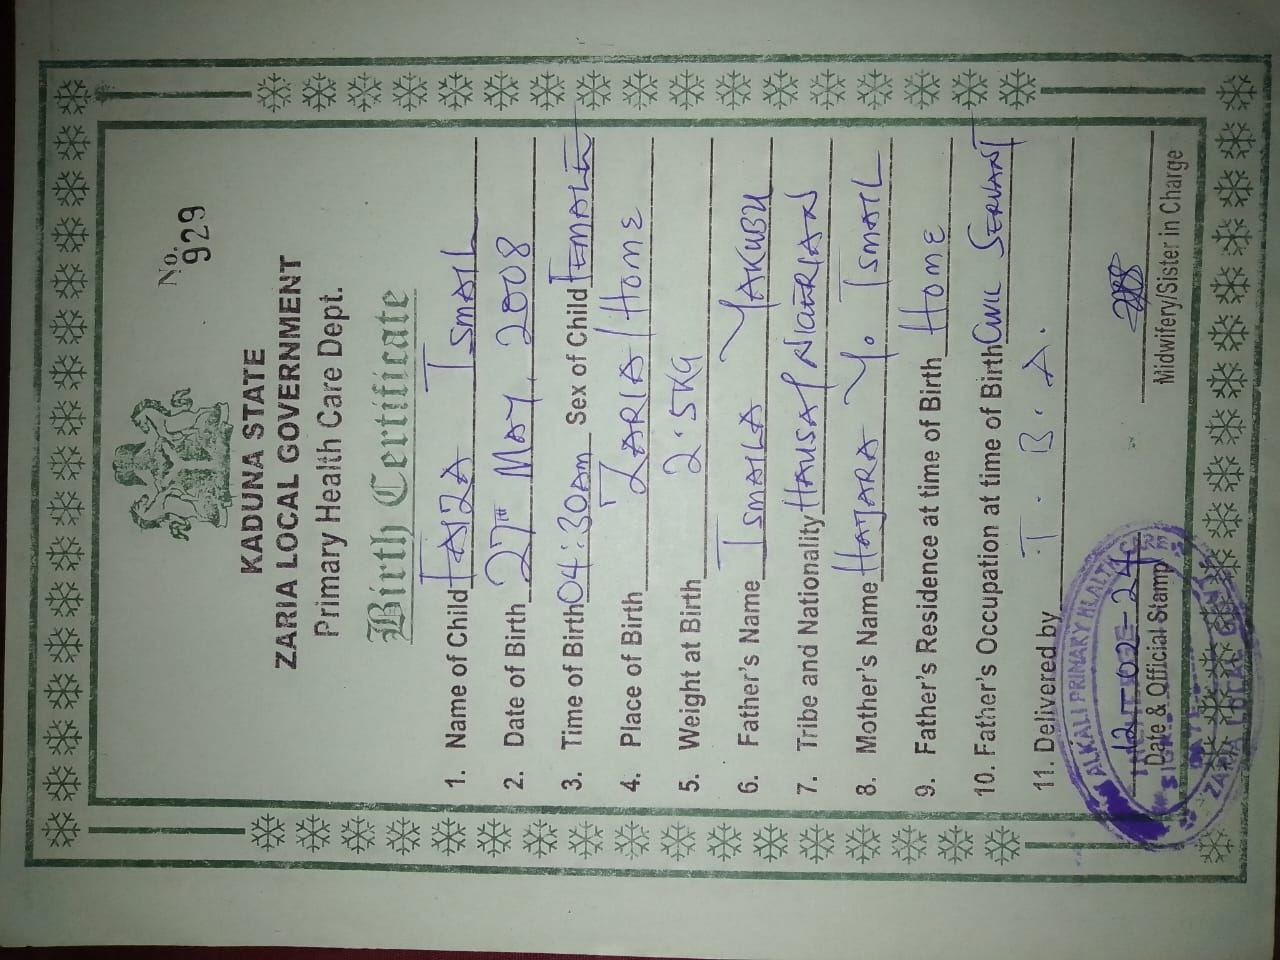 No.
929
KADUNA STATE
ZARIA LOCAL GOVERNMENT
Primary Health Care Dept.
Birth Certificate
1. Name of Child FAIZA ISMAIL
2. Date of Birth 27TH MAY, 2008
3. Time of Birth 04:30am Sex of Child FEMALE
4. Place of Birth ZARIA/HOME
5. Weight at Birth 2.5KG
6. Father's Name ISMAILA YAKUBU
7. Tribe and Nationality HAUSA/NIGERIAN
8. Mother's Name HAJARA Y. ISMAIL
9. Father's Residence at time of Birth HOME
10. Father's Occupation at time of Birth CIVIL SERVANT
11. Delivered by T.B.A.
12-02-24
Date & Official Stamp
Midwifery/Sister in Charge
ALKALI PRIMARY HEALTH CARE
SIGN
DATE
ZARIA LOCAL